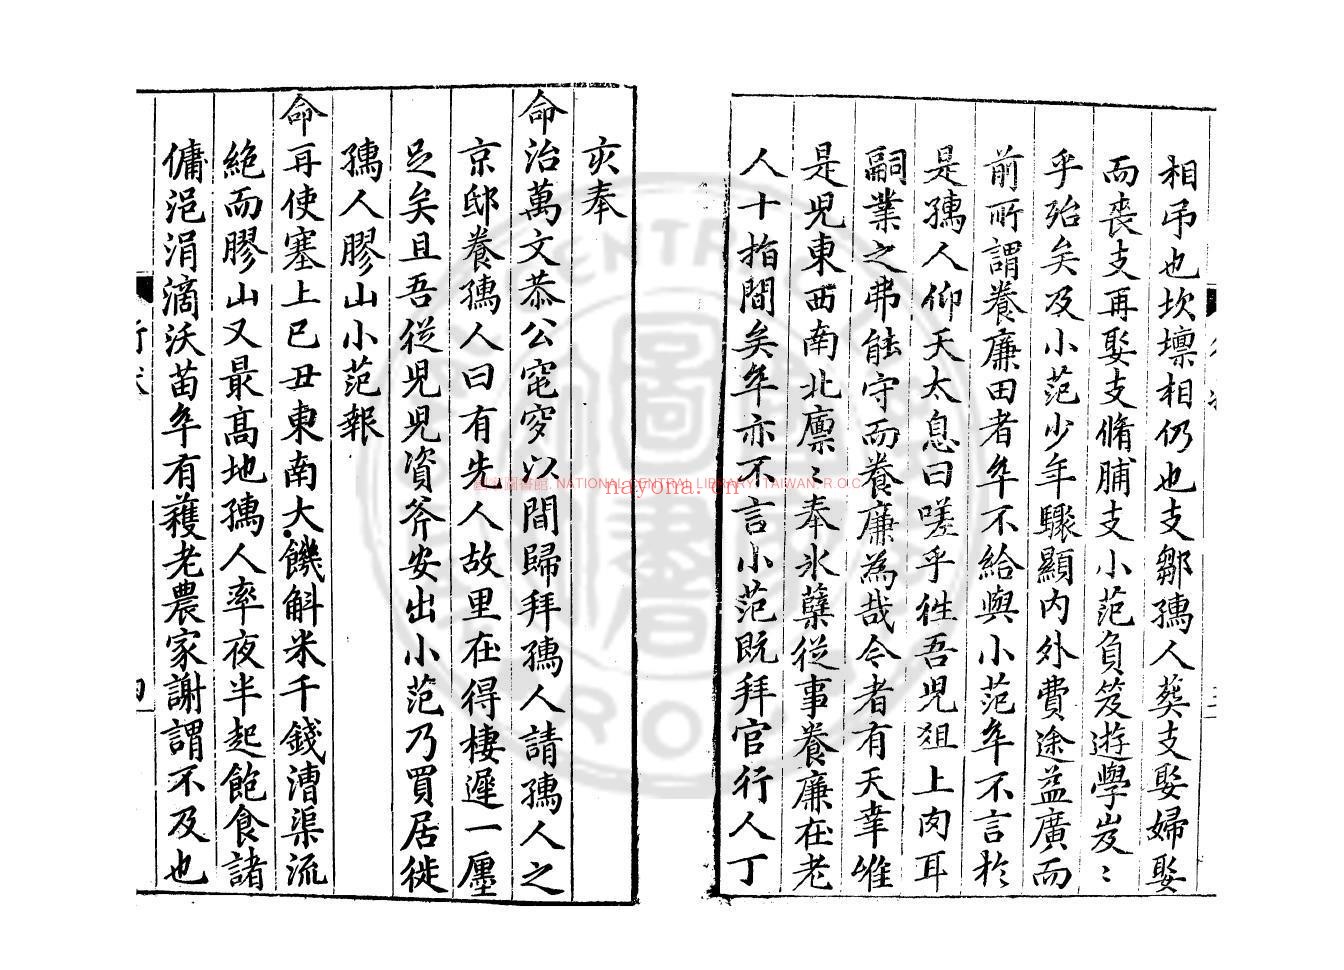 相吊也坎壈相仍也支鄒孺人葬支娶婦娶
而喪支再娶支脩脯支小范負笈遊學岌〻
乎殆矣及小范少年驟顯内外費途益廣而
前所謂養廉田者年不給與小范年不言於
是孺人仰天太息曰嗟乎徃吾児俎上肉耳
嗣業之弗能守而養廉為哉今者有天幸唯
是児東西南北廪〻奉氷蘗從事養廉在老
人十指間矣年亦不言小范既拜官行人丁
亥奉
命治萬文恭公窀穸以間歸拜孺人請孺人之
京邸養孺人曰有先人故里在得棲遲一廛
足矣且吾從児児資斧安出小范乃買居徙
孺人膠山小范報
命再使塞上已丑東南大饑斛米千錢漕渠流
絶而膠山又最高地孺人率夜半起飽食諸
傭浥涓滴沃苗年有穫老農家謝謂不及也
國立中央圖書館. NATIONAL CENTRAL LIBRARY, TAIWAN, R.O.C
nayona.cn